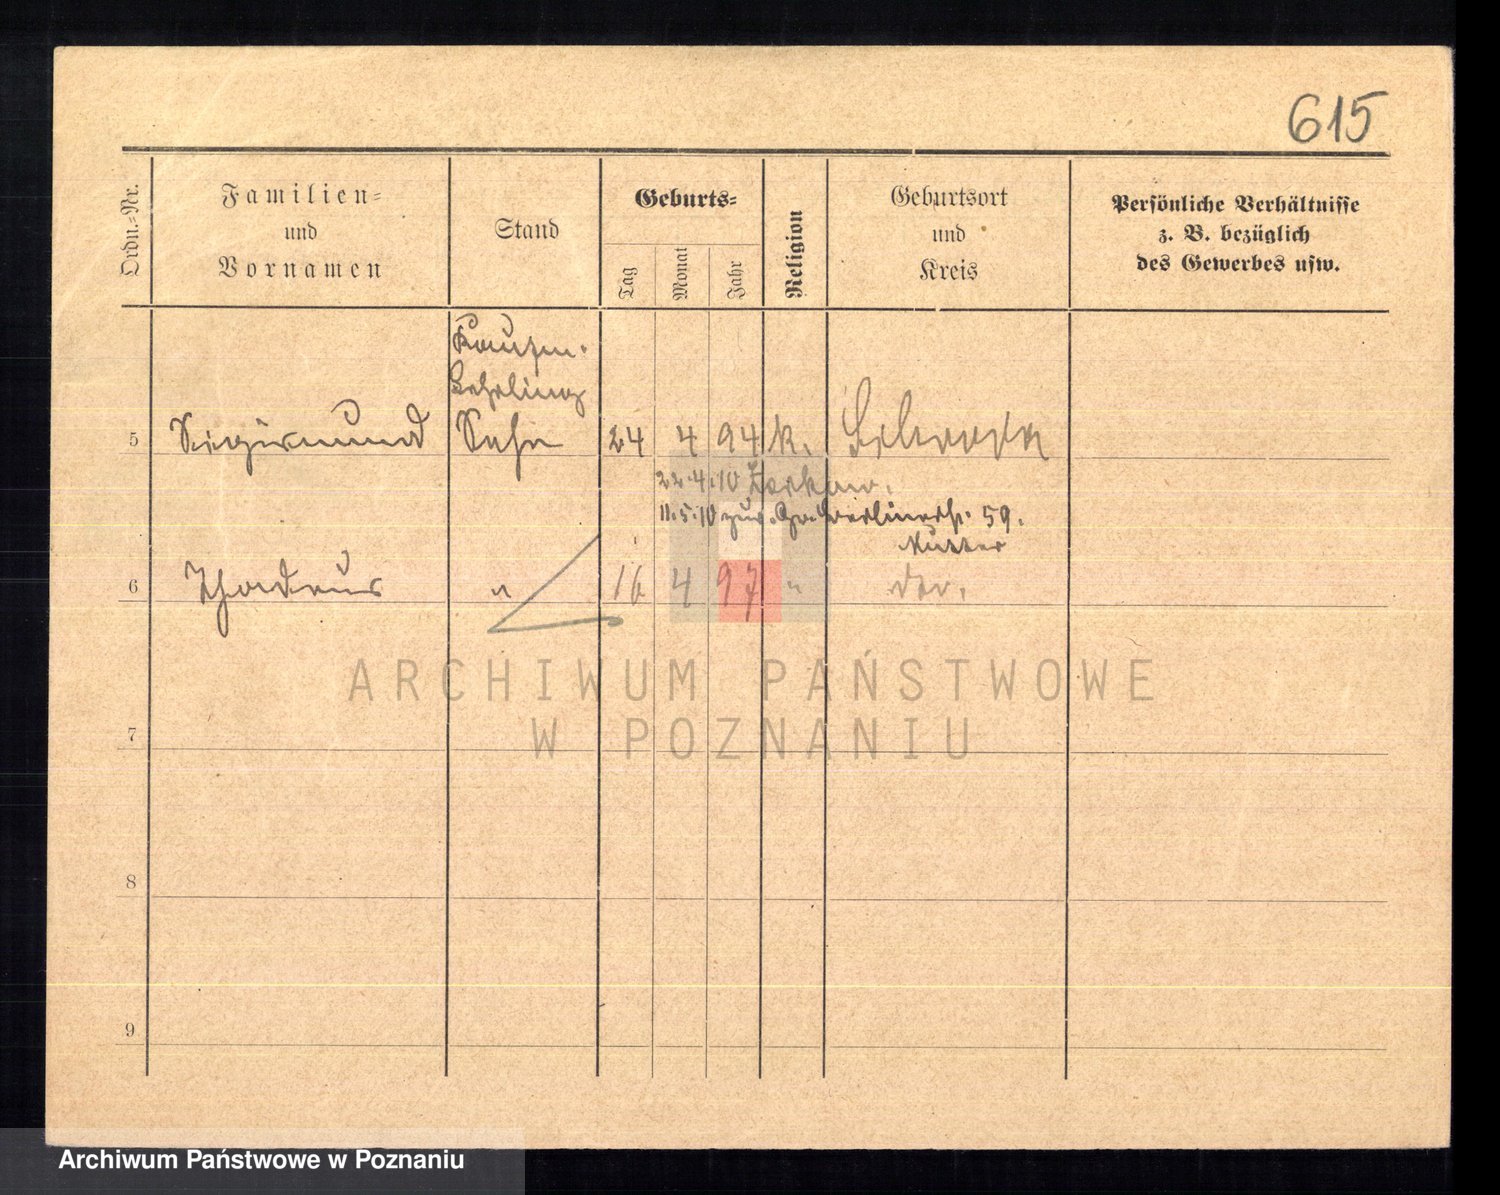 615
Ordn.-Nr.
Familien-
und
Vornamen
Stand
Geburts-
Tag
Monat
Jahr
Religion
Geburtsort
und
Kreis
Persönliche Verhältnisse
z. B. bezüglich
des Gewerbes usw.
Kaufm.
Lehrling
5 Sigismund Sohn 24 4 94 k.
22.4.10 Zerkow.
11.5.10 zur. Berlinerstr. 59.
Mutter
6 Thadeus " 16 4 97 "
7
8
9
ARCHIWUM PAŃSTWOWE
W POZNANIU
Archiwum Państwowe w Poznaniu